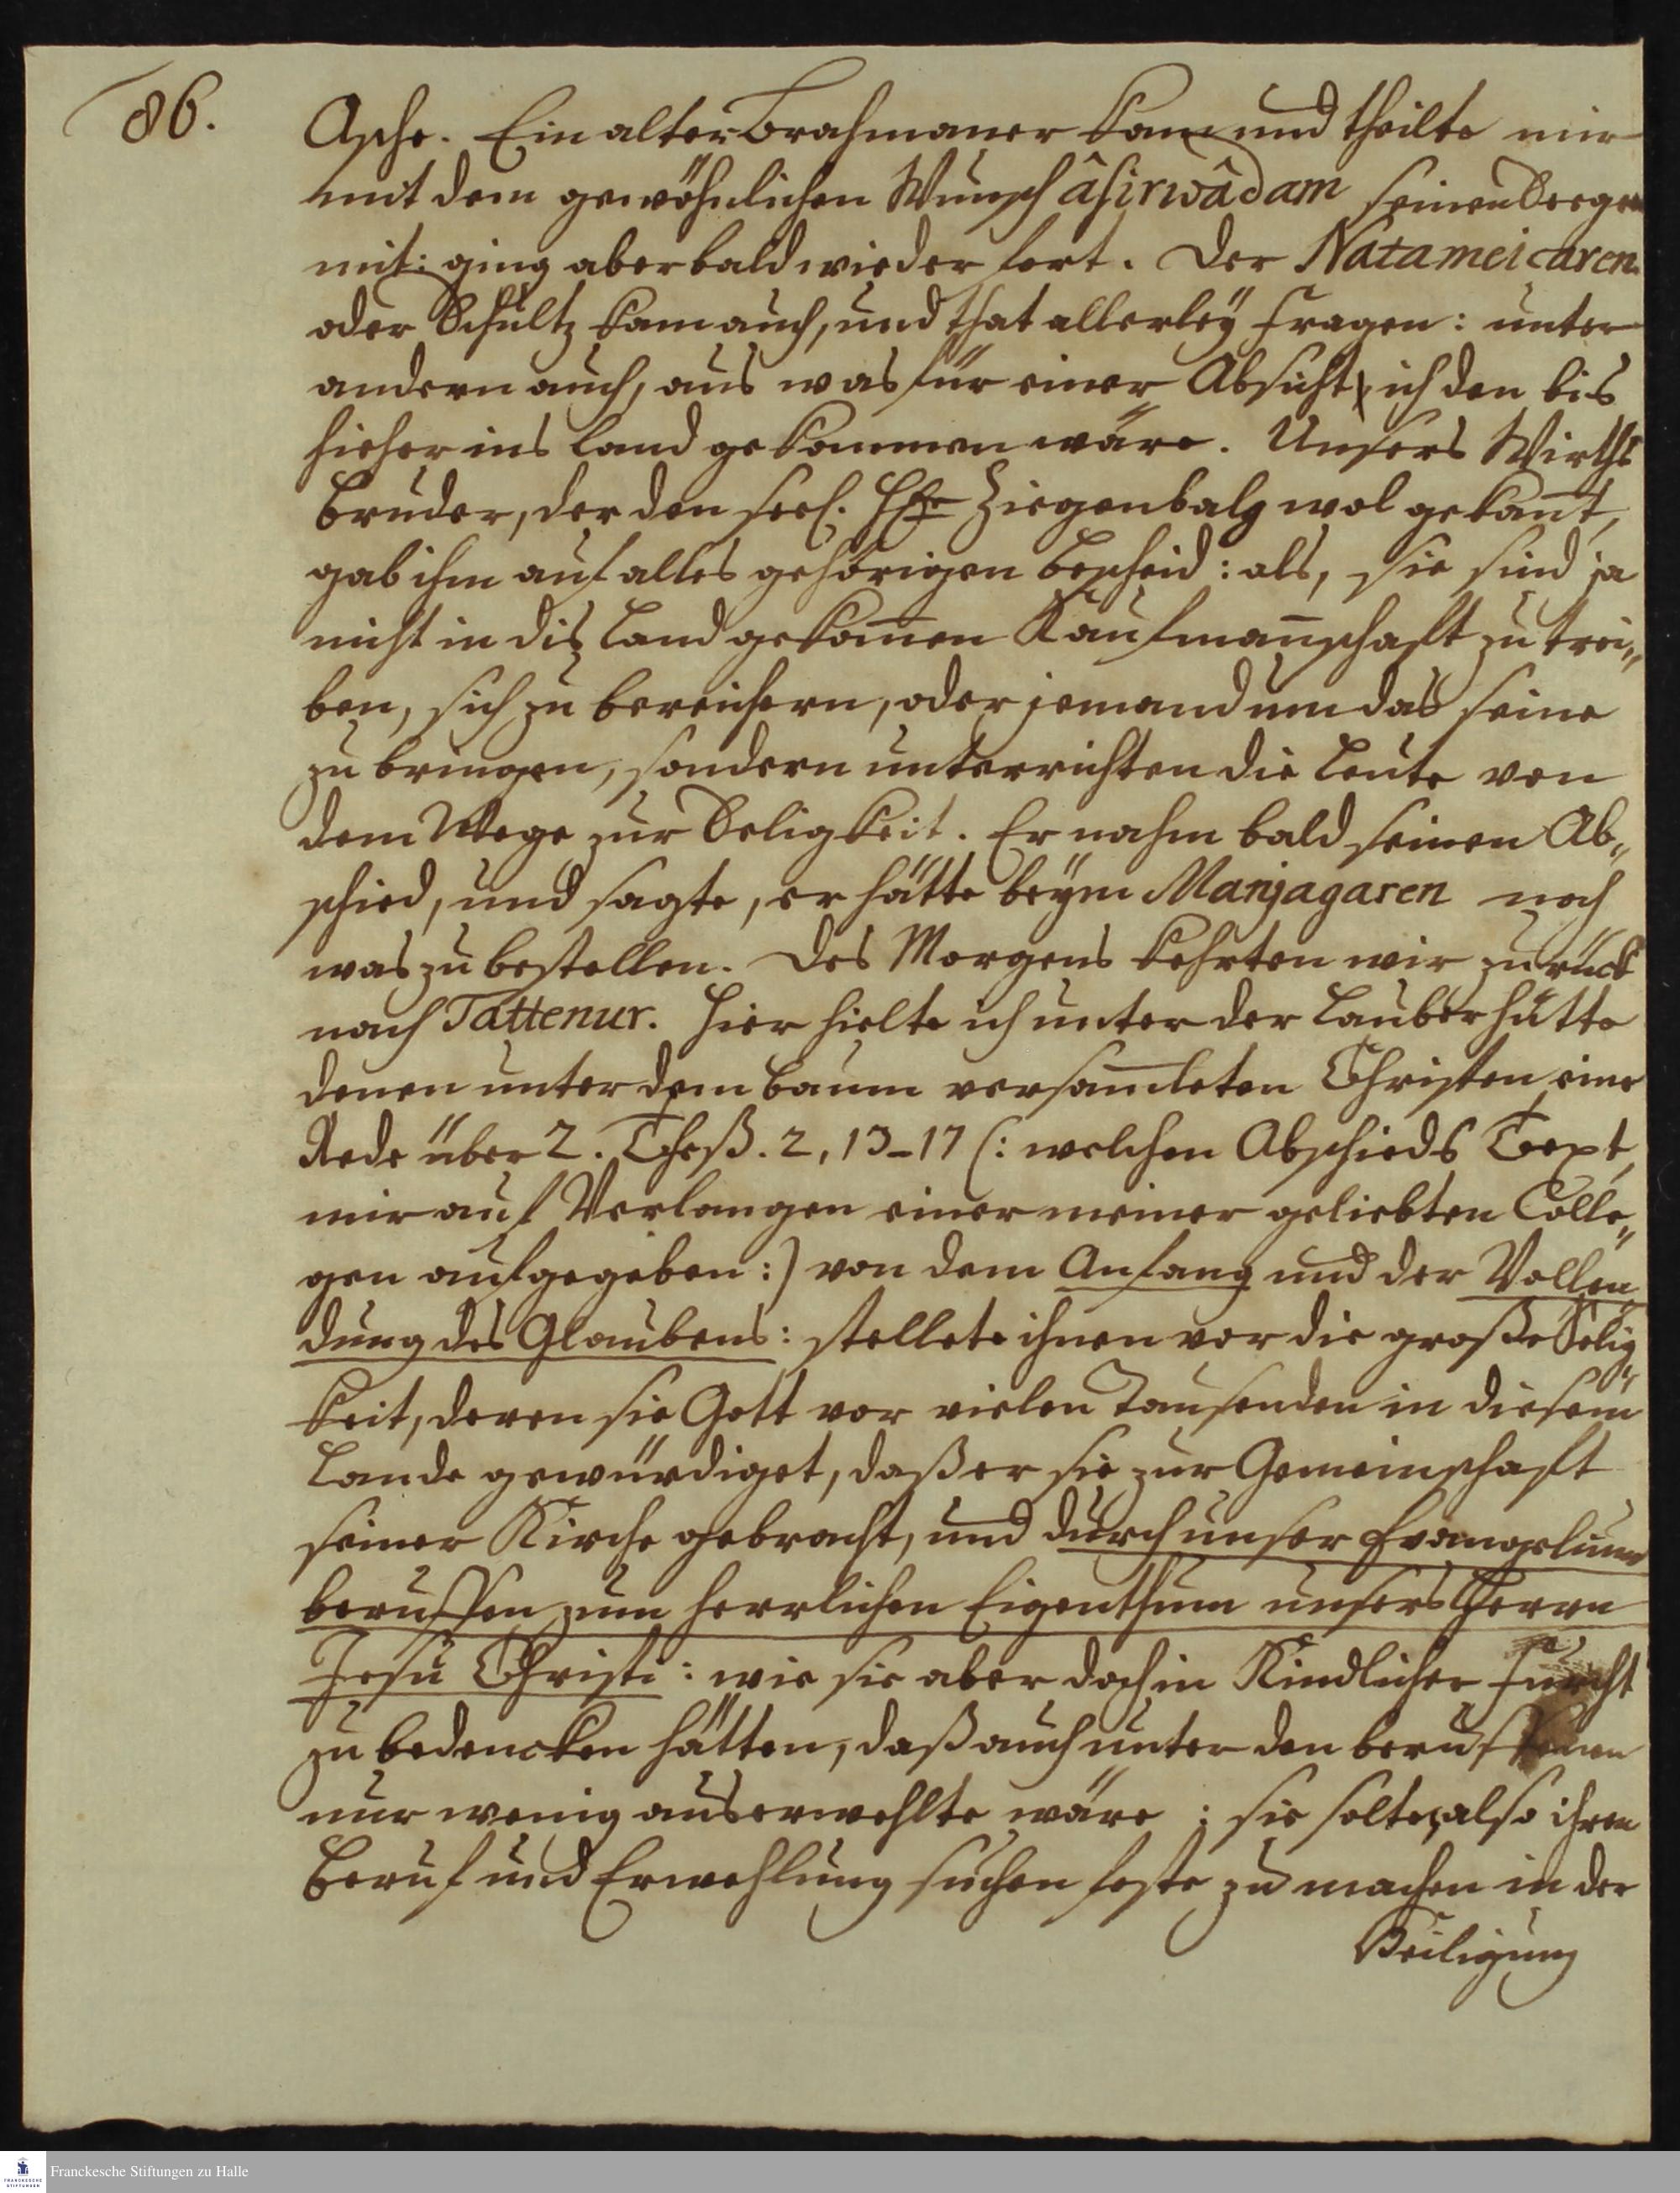 86.
Asche. Ein alter Brahmaner kam und theilte mir
mit dem gewöhnlichen Wunsch âsirwâdam seinen Seegen
mit: ging aber bald wieder fort. Der Natameicaren
oder Schultz kam auch, und that allerley Fragen: unter
andern auch, aus was für einer Absicht, ich den bis
hieher ins Land gekommen wäre. Unsers Wirths
Bruder, der den seel. HE Ziegenbalg wol gekan̄t,
gab ihm auf alles gehörigen Bescheid: als, sie sind ja
nicht in dis Land gekom̄en Kaufman̄schaft zu trei„
ben, sich zu bereichern, oder jemand um das seine
zu bringen, sondern unterrichten die Leute von
dem Wege zur Seligkeit. Er nahm bald seinen Ab„
schied, und sagte, er hätte beym Manjagaren noch
was zu bestellen. Des Morgens kehrten wir zurück
nach Tattenur. Hier hielte ich unter der Lauberhütte
denen unter dem Baum versam̄leten Christen eine
Rede über 2. Theß. 2, 13-17 (: welchen Abschieds Text
mir auf Verlangen einer meiner geliebten Colle„
gen aufgegeben :) von dem Anfang und der Vollen
dung des Glaubens: stellete ihnen vor die große Selig
keit, deren sie Gott vor vielen Tausenden in diesem
Lande gewürdiget, daß er sie zur Gemeinschaft
seiner Kirche gebracht, und durch unser Evangelium
beruffen zum herrlichen Eigenthum unsers Herrn
Jesu Christi: wie sie aber doch in Kindlicher Furcht
zu bedencken hätten, daß auch unter den beruffenen
nur wenig auserwehlte wäre : sie solten also ihren
Beruf und Erwehlung suchen feste zu machen in der
Heiligung
Franckesche Stiftungen zu Halle